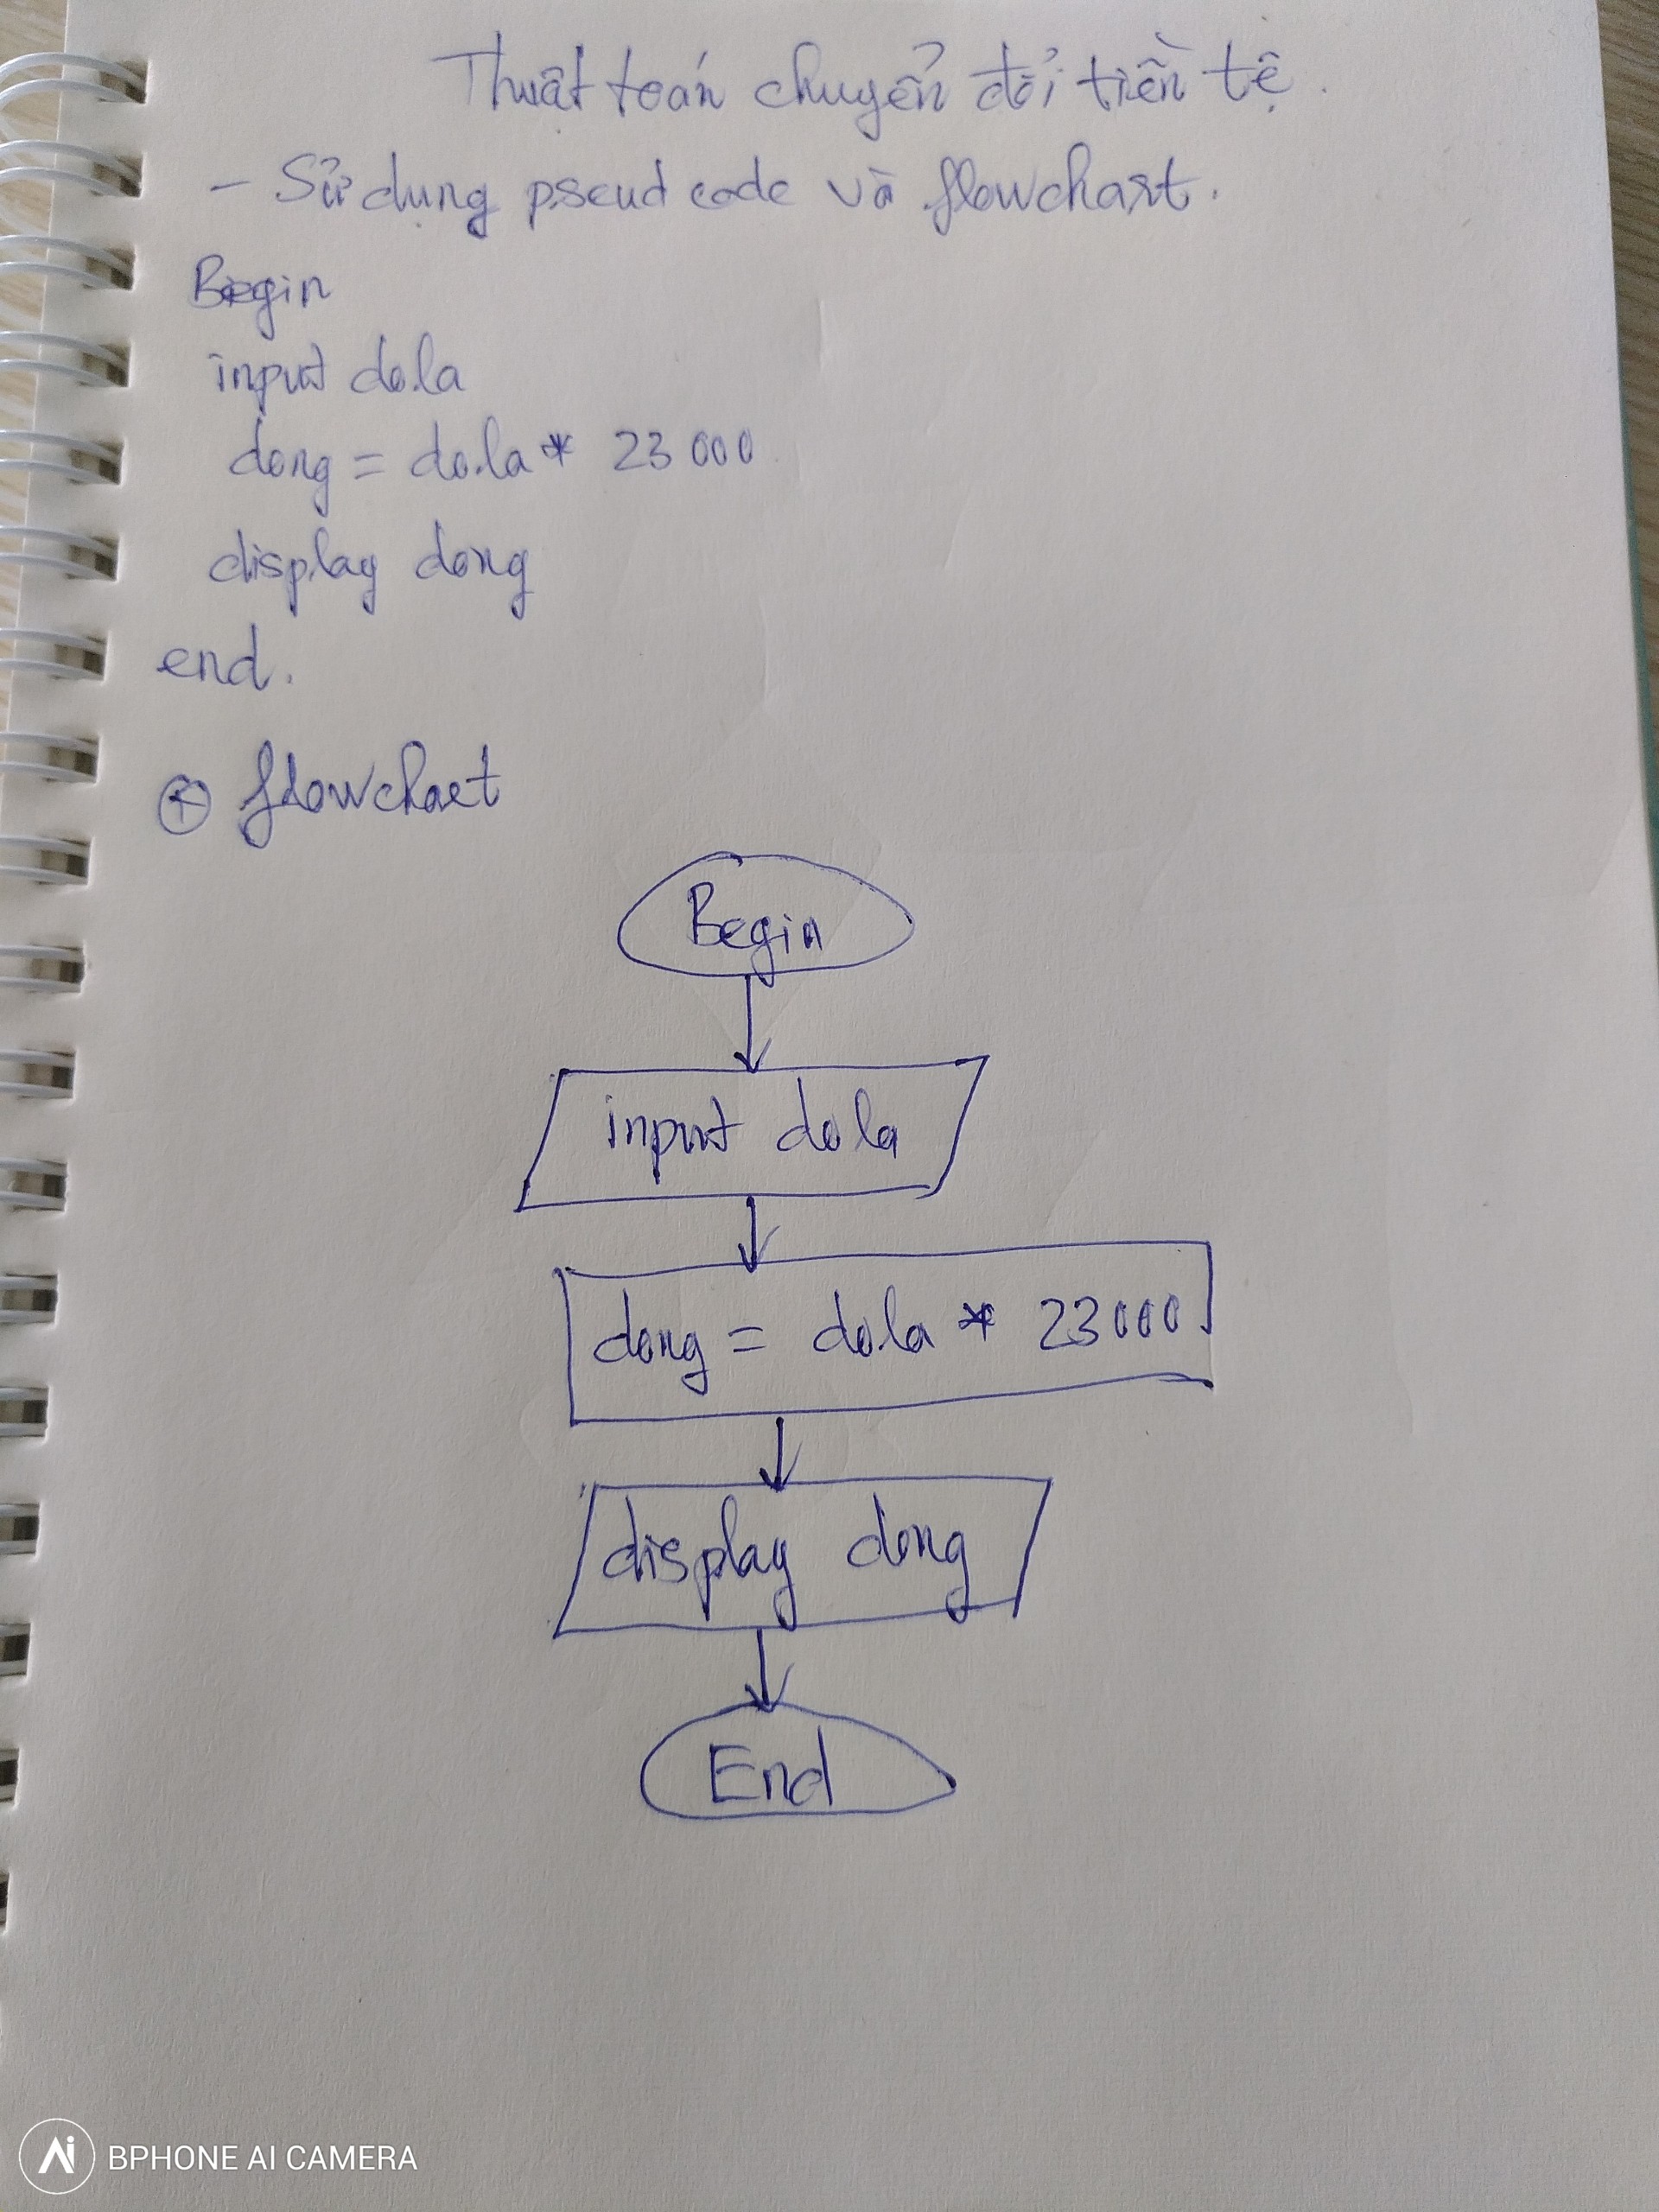 Thuật toán chuyển đổi tiền tệ.
- Sử dụng pseud code và flowchart.
Begin
input dola
dong = dola * 23 000
display dong
end.
flowchart
Begin
input dola
dong = dola * 23000
display dong
End
Ai BPHONE AI CAMERA